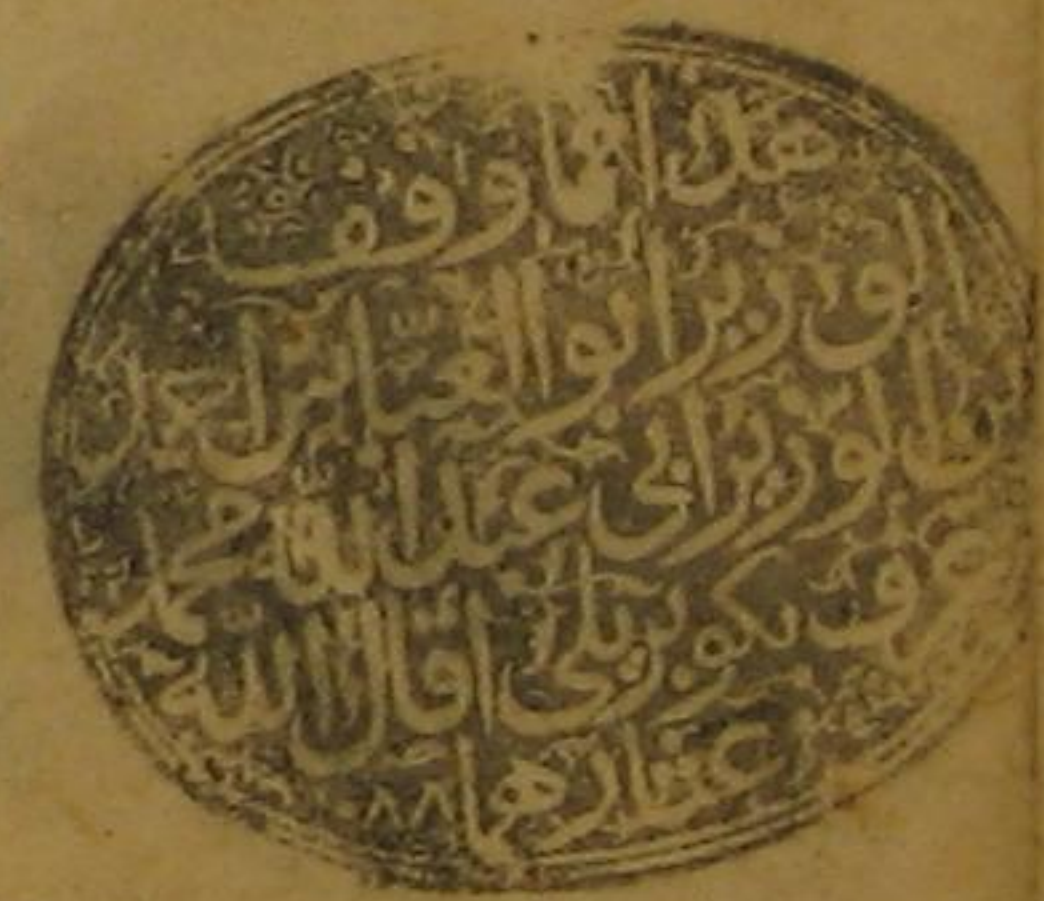 هذا مما وقفه
الوزير ابو العباس احمد
بن الوزير ابي عبد الله محمد
عرف بكوپريلى اقال الله
عثارهما ٠٨٨